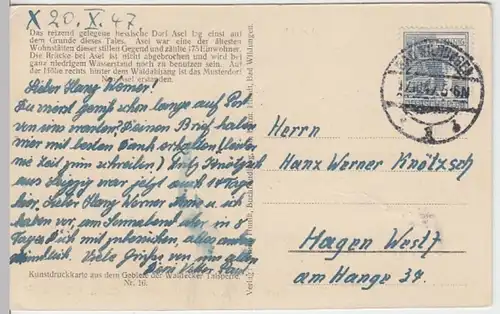 X 20. X. 47.
Das reizend gelegene hessische Dorf Asel lag einst auf
dem Grunde dieses Tales. Asel war eine der ältesten
Wohnstätten dieser stillen Gegend und zählte 175 Einwohner.
Die Brücke bei Asel ist nicht abgebrochen und wird bei
ganz niedrigem Wasserstand noch zu benutzen sein. Auf
der Höhe rechts hinter dem Waldabhang ist das Musterdorf
Neu-Asel erstanden.
Lieber Hanz Werner!
Du wirst gewiß schon lange auf Post
von uns warten? Deinen Brief haben
wir mit besten Dank erhalten. (leider
nie Zeit zum schreiben)
aus Leipzig war jetzt auch 10 Tage
hier. Lieber Hanz Werner
haben vor, am Sonnabend oder in 8
Tagen Dich mit zu besuchen, alles andere
mündlich. Viele Grüße von uns allen
Dein Vetter
Kunstdruckkarte aus dem Gebiete der Waldecker Talsperre.
Nr. 16.
Bad Wildungen
BAD WILDUNGEN
Herrn
Hanz Werner Knötzsch
Hagen Westf
am Hange 37.